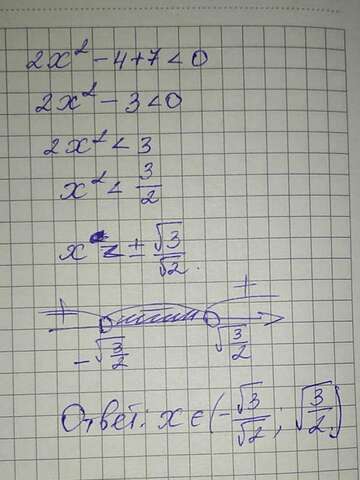 2x² - 4 + 7 < 0
2x² - 3 < 0
2x² < 3
x² < 3/2
x = ± √3/√2.
+ +
-√(3/2) √(3/2)
Ответ: x ∈ (-√3/√2; √(3/2))